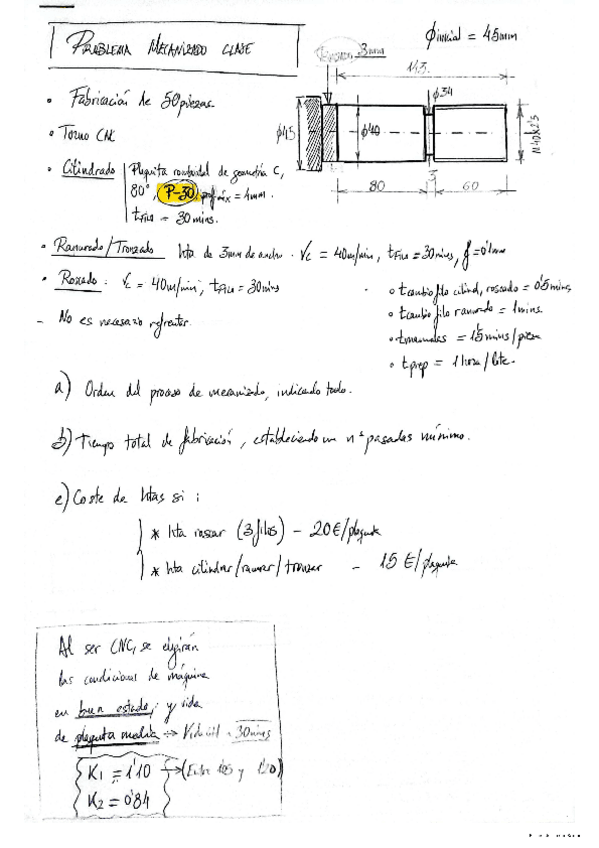 PROBLEMA MECANIZADO CLASE
ϕinicial = 45mm
3mm
143
ϕ34
ϕ45
ϕ40
M40x2'5
3
80
60
• Fabricación de 50 piezas.
• Torno CNC
• Cilindrado | Plaquita romboidal de geometría C,
80°, P-30, prof máx = 4mm.
tfilo = 30 mins.
• Ranurado/Tronzado hta de 3mm de ancho. Vc = 40m/min, tfilo = 30 mins, f = 0'1mm
• Roscado: Vc = 40m/min, tfilo = 30 mins
- No es necesario refrentar
• tcambio filo cilind, roscado = 0'5 mins
• tcambio filo ranurado = 1 mins.
• tmanuales = 1'5 mins/pieza
• tprep = 1 hora/lote.
a) Orden del proceso de mecanizado, indicando todo.
b) Tiempo total de fabricación, estableciendo un nº pasadas mínimo.
c) Coste de htas si:
* hta roscar (3 filos) - 20€/plaquita
* hta cilindrar/ranurar/tronzar - 15 €/plaquita
Al ser CNC, se elegirán
las condiciones de máquina
en buen estado, y vida
de plaquita media → Vida útil = 30 mins
K1 = 1'10 → (Entre 1'05 y 1'20)
K2 = 0'84